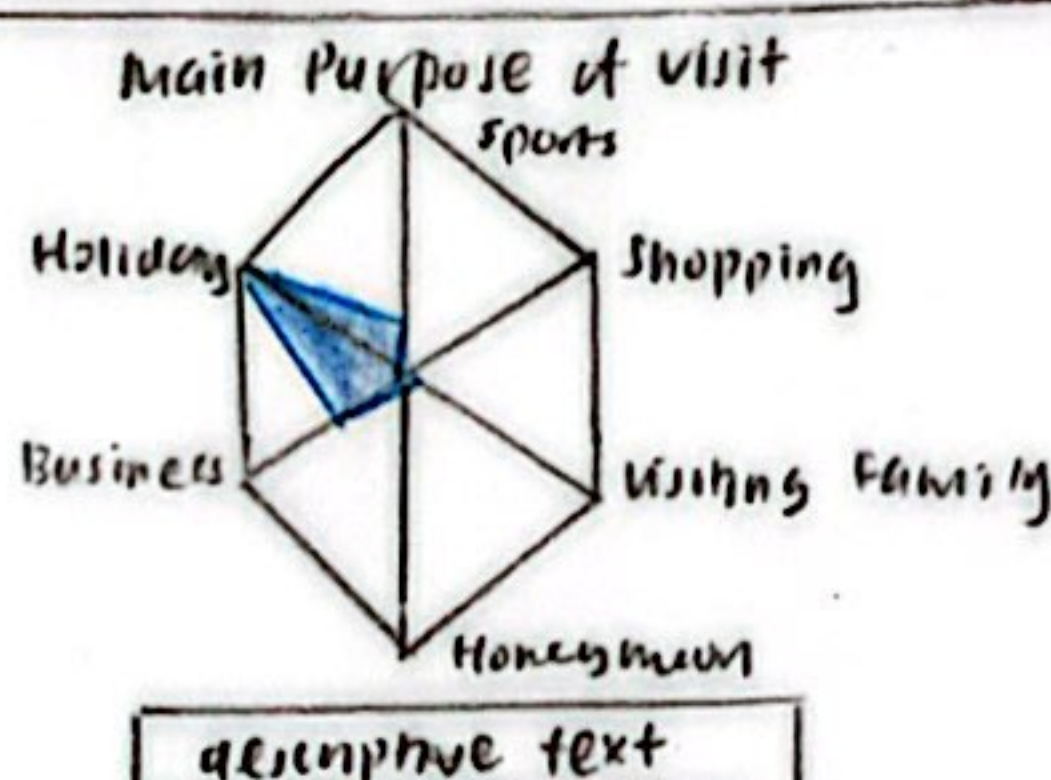 Main Purpose of visit
Sports
Holiday
Shopping
Business
Visiting Family
Honeymoon
descriptive text